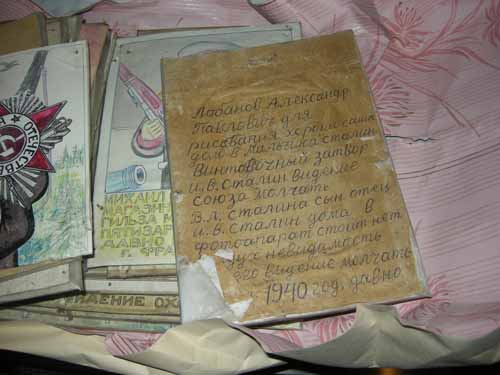 Лобанов Александр
Павлович для
рисования хорошо саша
дело в мальчика сталин
Винтовочный затвор
и.в. Сталин видение
союза молчать
В.л. сталина сын отец
и.в. Сталин дома в
фотоапарат стоит нет
дух невидалость
его видение молчать
1940 год. давно
ОТЕЧЕСТВЕ
МИХАИЛ
МАГАЗИН
ГИЛЬЗА
ПЯТИЗАР
ДАВНО
Г.
ДЕНИЕ ОХ